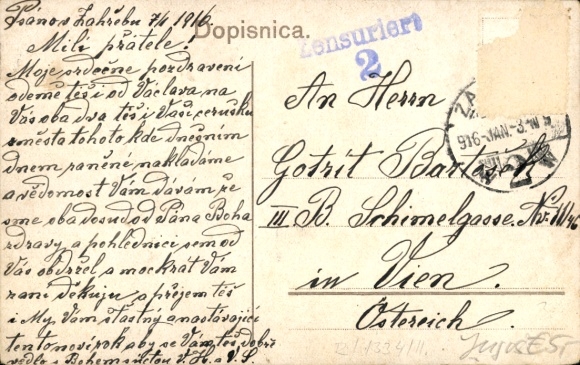 Psáno v Zahřebu 7/1 1916.
Dopisnica.
Milí přátele!
Moje srdečné pozdravení
odemě též i od Václava na
Vás oba dva též i Vaší cerušku
z města tohoto kde dnešním
dnem raněné nakládáme
a vědomost Vám dávám že
sme oba dosud od Pána Boha
zdravy, a pohlednici sem od
Vás obdržel a mockrát Vám
za ni děkuju a přejem též
i My Vám šťastný a nastávající
tento noví rok aby se Vám též dobře
vedlo s Bohem
Zensuriert
2
An Herrn
Gotrit Bartasek
III B. Schimelgasse. Nr.
in Vien.
Östereich.